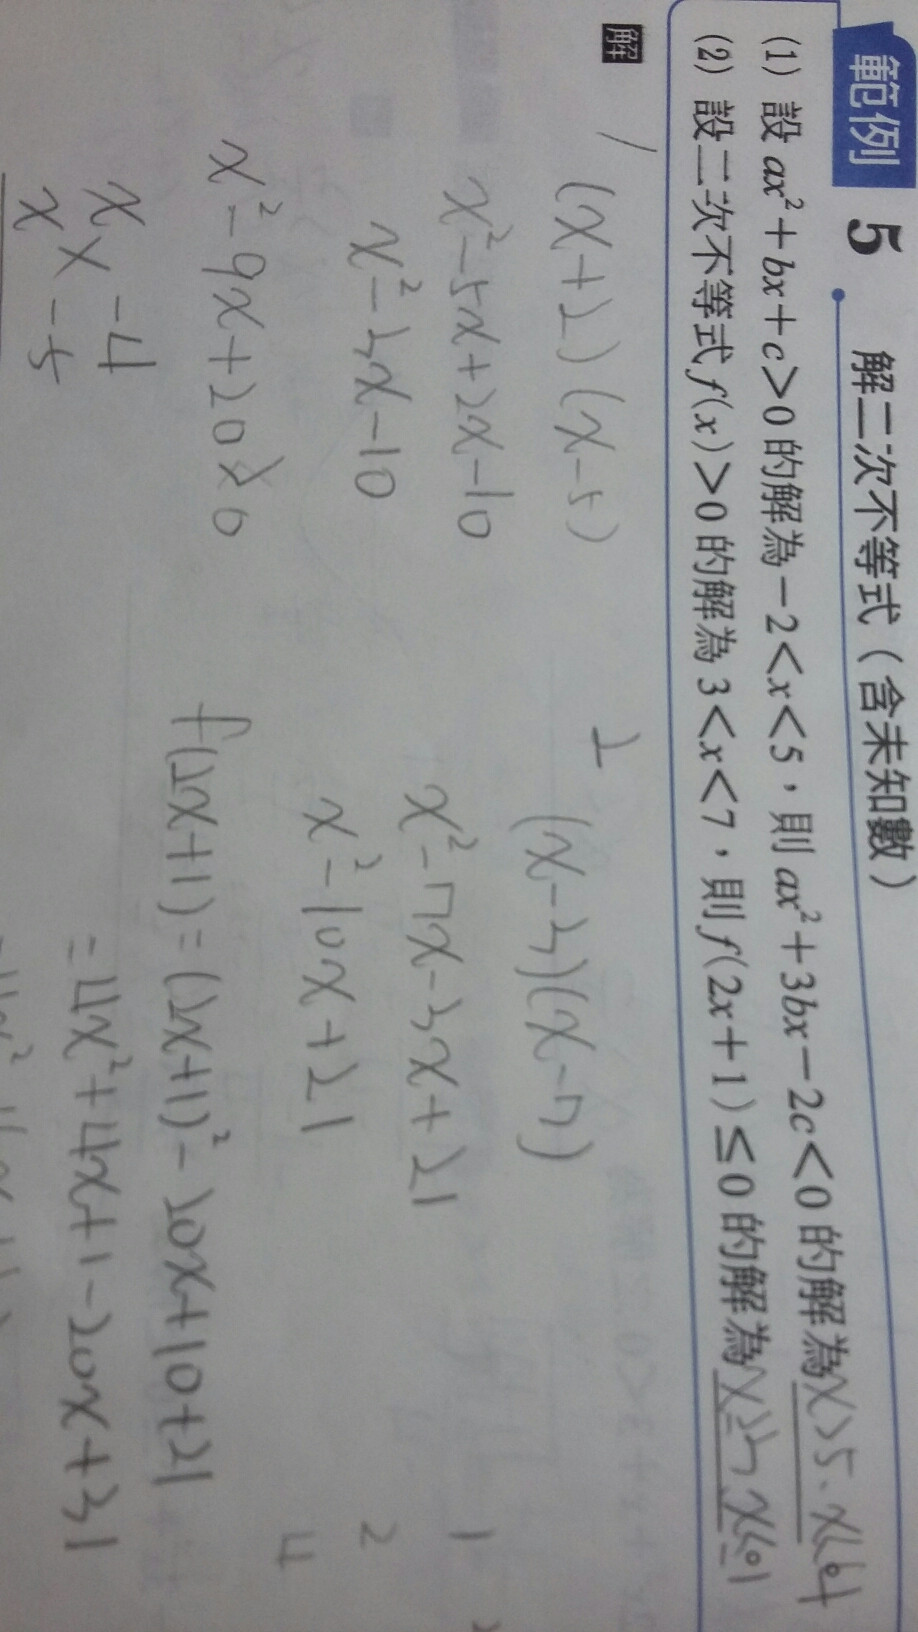 範例 5 解二次不等式（含未知數）
(1) 設 ax²+bx+c>0 的解為 -2<x<5，則 ax²+3bx-2c<0 的解為 x>5.x<4
(2) 設二次不等式 f(x)>0 的解為 3<x<7，則 f(2x+1)≤0 的解為 x≥3 x≤1
解
1 (x+2)(x-5)
x²-5x+2x-10
x²-3x-10
x²-9x+20>0
x -4
x -5
2 (x-3)(x-7)
x²-7x-3x+21
x²-10x+21
f(2x+1)=(2x+1)²-20x+10+21
=4x²+4x+1-20x+31
1
2
4